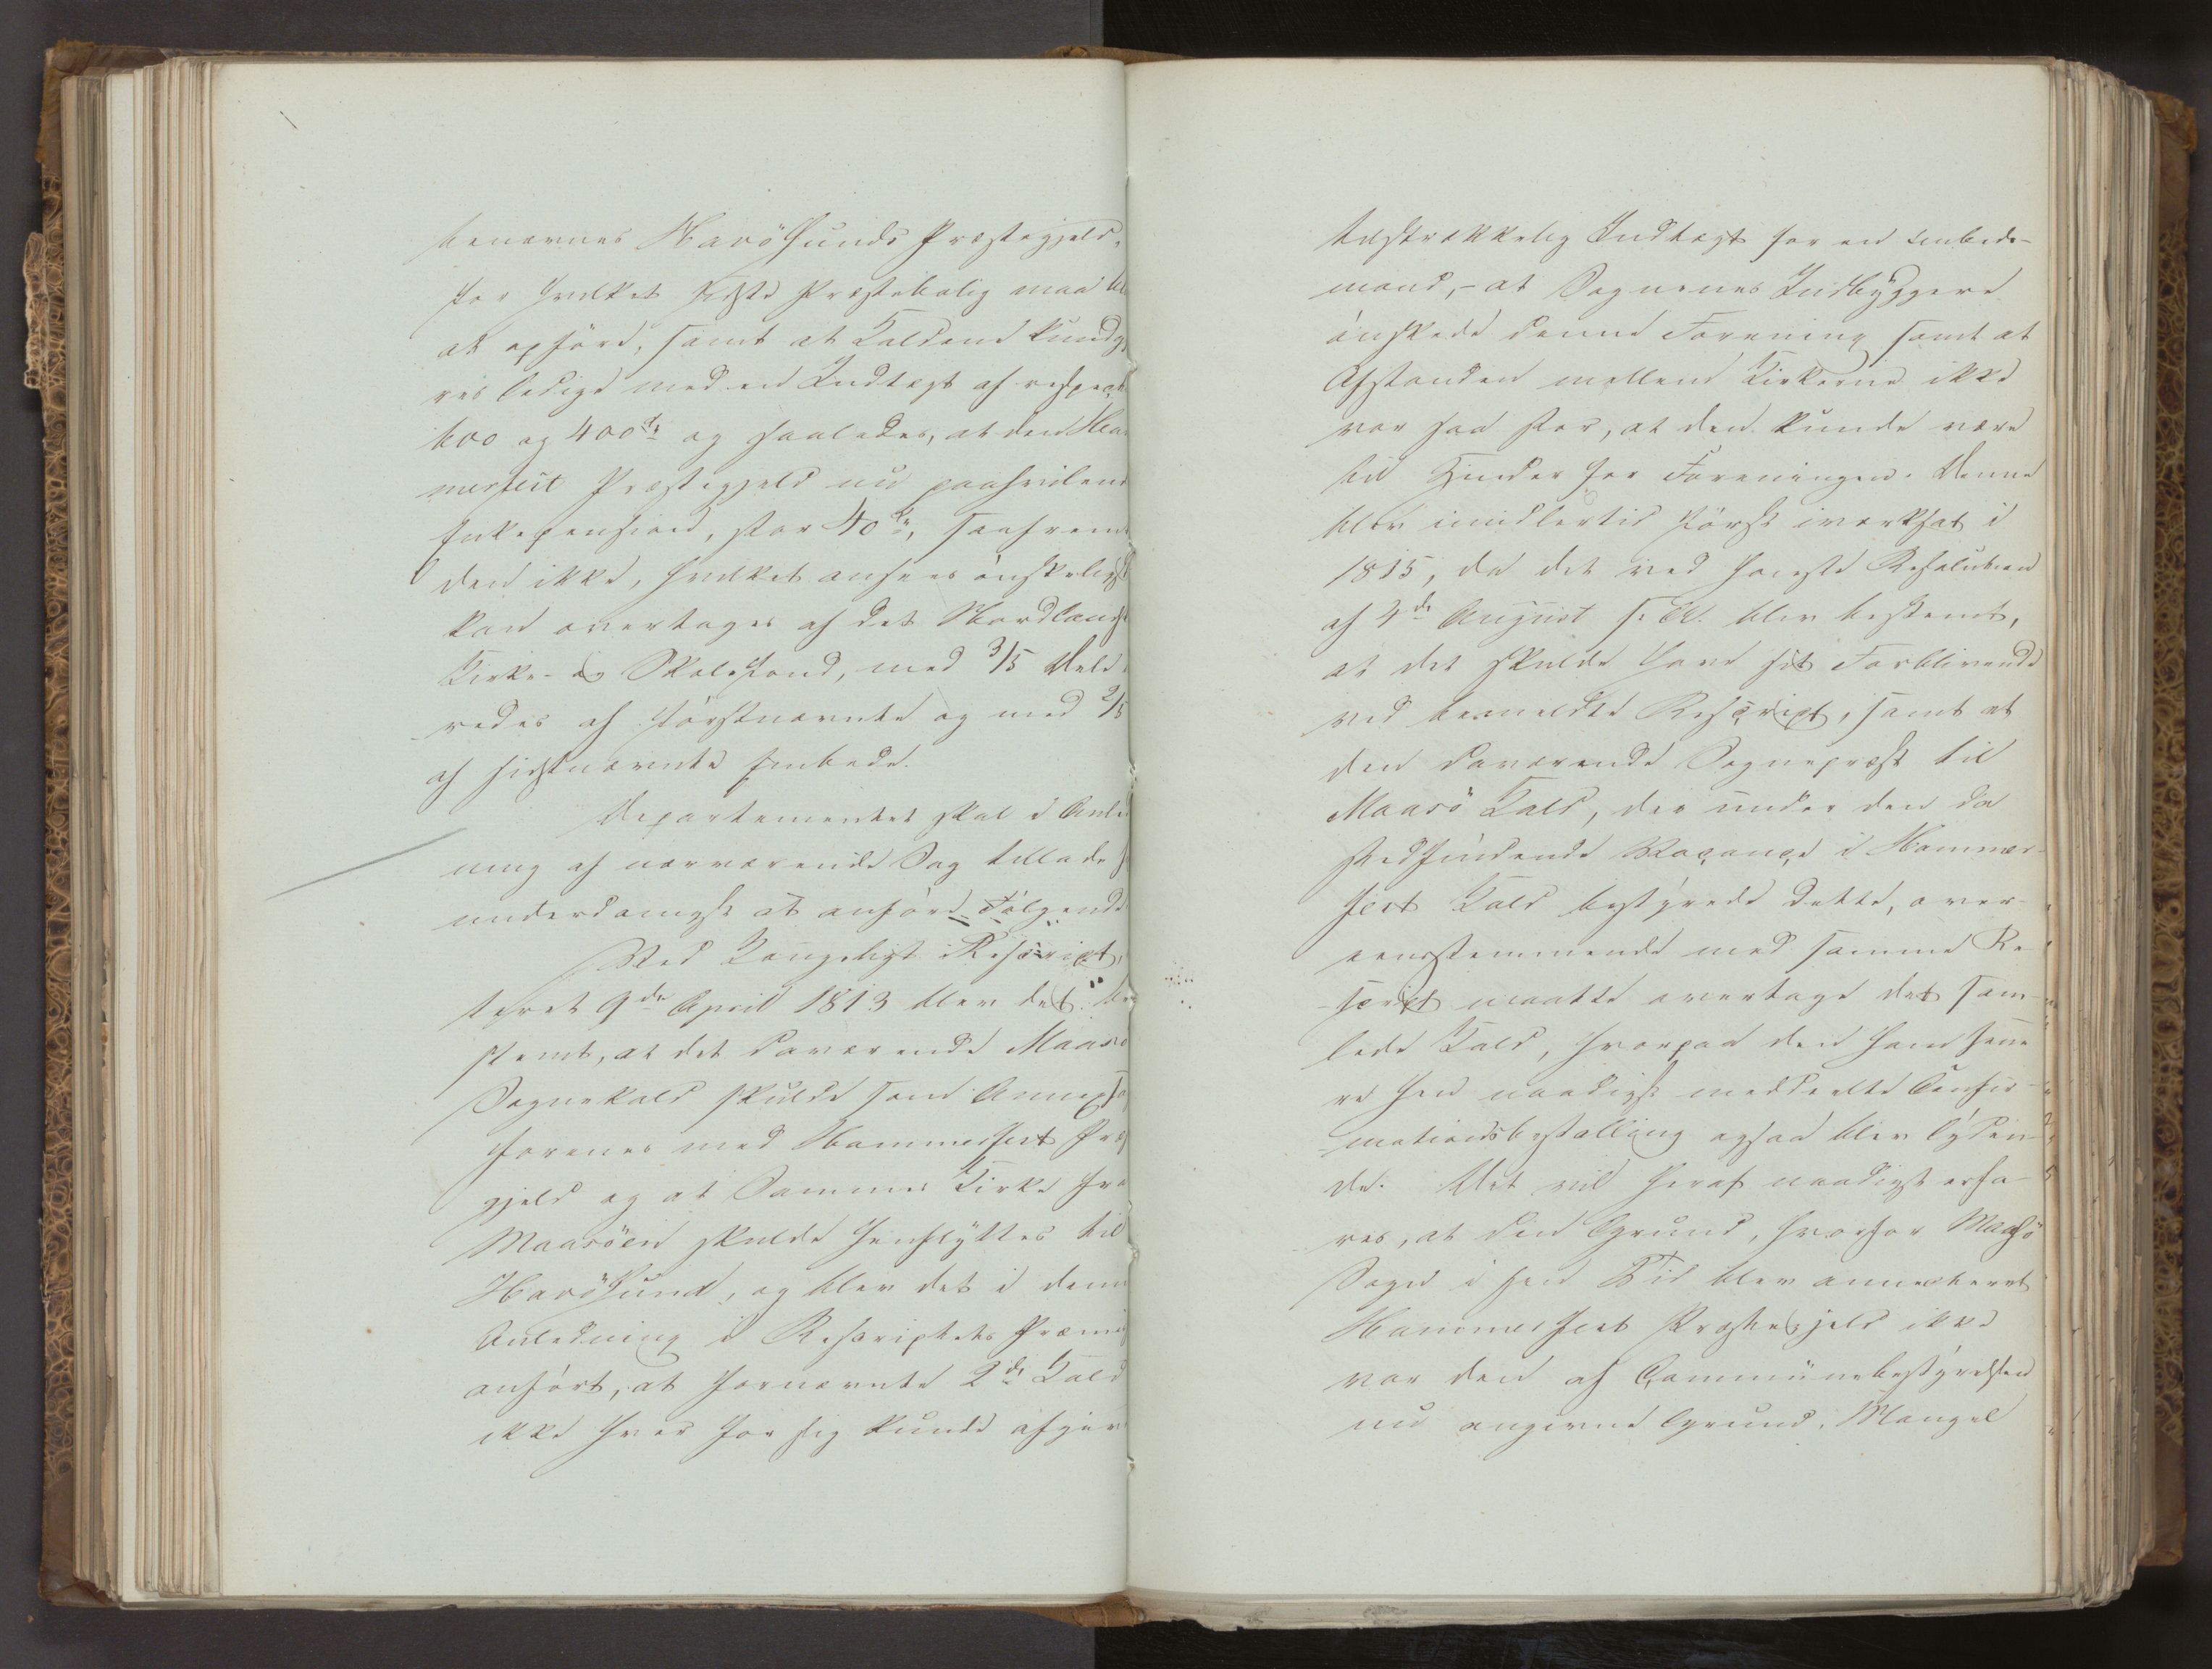 benævnes Havösunds Præstegjeld,
for hvilket sidste Præstebolig maa bli
at opföre, samt at Kaldene kundgj
res ledige med en Indtægt af respect
600 og 400 Sp og saaledes, at den Ham
merfest Præstegjeld nu paahvilende
Enkepension, stor 40 Sp, saafremt
den ikke, hvilket ansees önskeligst
kan overtages af det Nordlandske
Kirke- og Skolefond, med 3/5 Dele
redes af förstnævnte og med 2/5
af sidstnævnte Embede.
Departementet skal i Anled
ning af nærværende Sag tillade s
underdanigst at anföre Fölgende
Ved Kongeligt Rescript,
teret 9de April 1813 blev det be
stemt, at det daværende Maasö
Sognekald skulde som Annex
forenes med Hammerfest Præs
gjeld og at Sammes Kirke fra
Maasöen skulde henflyttes til
Havösund, og blev det i denne
Anledning i Rescriptets Præmis
anfört, at fornævnte 2de Kald
ikke hver for sig kunde afgive
tilstrækkelig Indtægt for en Embeds-
mand, - at Sognenes Indbyggere
önskede denne Forening samt at
Afstanden mellem Kirkerne ikke
var saa stor, at den kunde være
til Hinder for Foreningen. Denne
blev imidlertid först iværksat i
1815, da det ved höieste Resolution
af 4de August s. A. blev bestemt,
at det skulde have sit Forblivende
ved bemeldte Rescript, samt at
den daværende Sognepræst til
Maasö Kald, der under den da
stedfindende Vacance i Hammer-
fest Kald bestyrede dette, over-
eensstemmende med samme Re-
script maatte overtage det sam-
lede Kald, hvorpaa den ham sene
re hen naadigst meddeelte Confir-
mationsbestalling ogsaa blev lyden-
de. Det vil heraf naadigst erfa-
res, at den Grund, hvorfor Maasö
Sogn i sin Tid blev annecteret
Hammerfest Præstegjeld ikke
var den af Communebestyrelsen
nu angivne Grund, Mangel